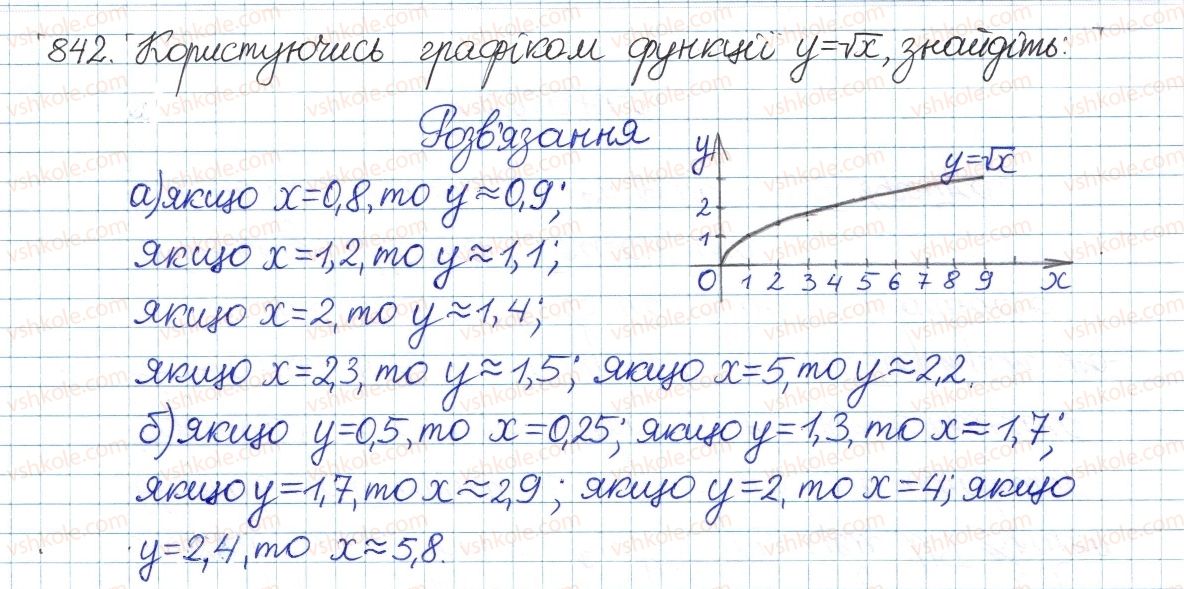 842. Користуючись графіком функції y=√x, знайдіть:
Розв'язання
а) якщо x=0,8, то y≈0,9;
якщо x=1,2, то y≈1,1;
якщо x=2, то y≈1,4;
якщо x=2,3, то y≈1,5; якщо x=5, то y≈2,2.
б) якщо y=0,5, то x=0,25; якщо y=1,3, то x≈1,7;
якщо y=1,7, то x≈2,9; якщо y=2, то x=4; якщо
y=2,4, то x≈5,8.
y
y=√x
2
1
0 1 2 3 4 5 6 7 8 9 x
vshkole.com